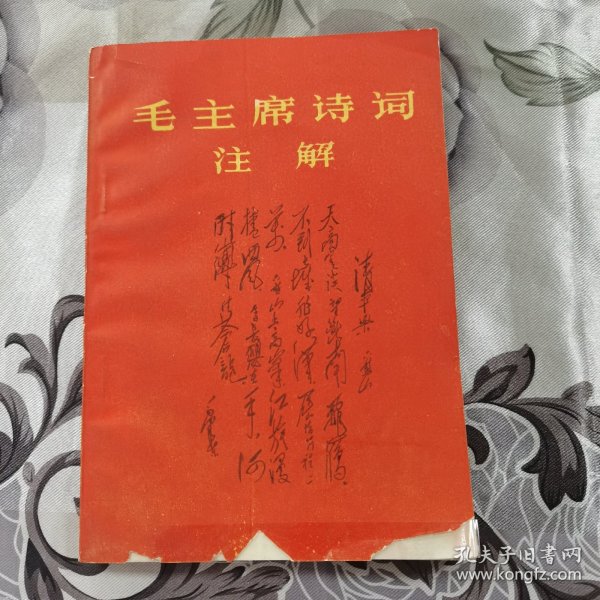 毛主席诗词
注解
清平乐 六盘山
天高云淡 望断南飞雁
不到长城非好汉 屈指行程二
万 六盘山上高峰 红旗漫
捲西风 今日长缨在手 何
时缚住苍龙
毛泽东
孔夫子旧书网
www.kongfz.com